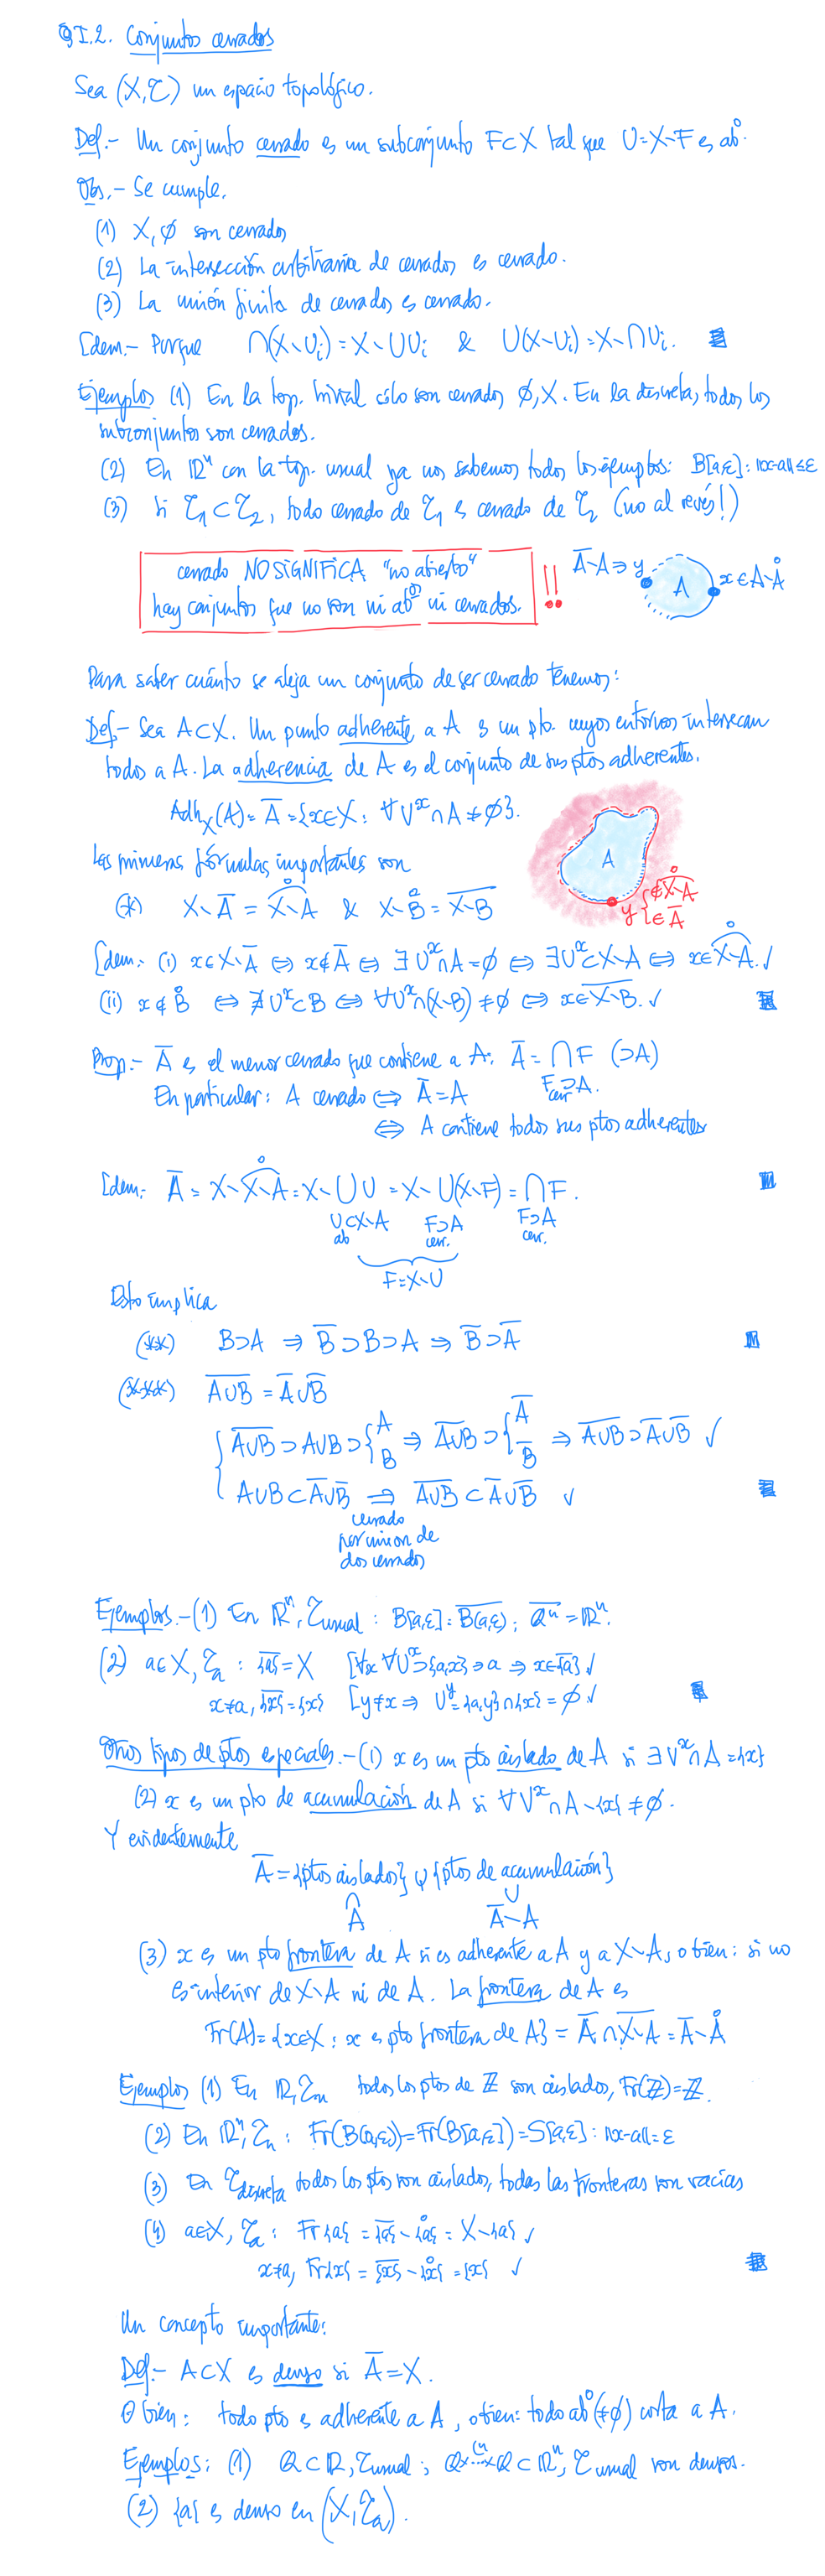 §I.2. Conjuntos cerrados
Sea (X,τ) un espacio topológico.
Def.- Un conjunto cerrado es un subconjunto F⊂X tal que U=X∖F es abº.
Obs.- Se cumple,
(1) X, ∅ son cerrados
(2) La intersección arbitraria de cerrados es cerrado.
(3) La unión finita de cerrados es cerrado.
[dem.- Porque ⋂(X∖Uᵢ)=X∖⋃Uᵢ & ⋃(X∖Uᵢ)=X∖⋂Uᵢ.
Ejemplos (1) En la top. trivial sólo son cerrados ∅,X. En la discreta, todos los
subconjuntos son cerrados.
(2) En ℝⁿ con la top. usual ya nos sabemos todos los ejemplos: B[a,ε]: ||x-a||≤ε
(3) Si τ₁⊂τ₂, todo cerrado de τ₁ es cerrado de τ₂ (no al revés!)
cerrado NO SIGNIFICA "no abierto"
hay conjuntos que no son ni abº ni cerrados. !!
A̅∖A∋y A x∈A∖Å
Para saber cuánto se aleja un conjunto de ser cerrado tenemos:
Def.- Sea A⊂X. Un punto adherente a A es un pto. cuyos entornos intersecan
todos a A. La adherencia de A es el conjunto de sus ptos adherentes.
Adh_X(A)= A̅ ={x∈X: ∀V^x∩A≠∅}.
A
y {∉ (X∖A)° ∈A̅
Las primeras fórmulas importantes son
(*) X∖A̅ = (X∖A)° & X∖B̊ = \overline{X∖B}
[dem.: (i) x∈X∖A̅ ⇔ x∉A̅ ⇔ ∃U^x∩A=∅ ⇔ ∃U^x⊂X∖A ⇔ x∈(X∖A)°. ✓
(ii) x∉B̊ ⇔ ∄U^x⊂B ⇔ ∀U^x∩(X∖B)≠∅ ⇔ x∈\overline{X∖B}. ✓
Prop.- A̅ es el menor cerrado que contiene a A: A̅ = ⋂F (⊃A)
F⊃A cerr.
En particular: A cerrado ⇔ A̅=A
⇔ A contiene todos sus ptos adherentes
[dem.- A̅ = X∖(X∖A)° = X∖⋃U = X∖⋃(X∖F) = ⋂F.
U⊂X∖A ab F⊃A cerr. F⊃A cerr.
F=X∖U
Esto implica
(**) B⊃A ⇒ B̅⊃B⊃A ⇒ B̅⊃A̅
(***) \overline{A∪B} = A̅∪B̅
{ \overline{A∪B}⊃A∪B⊃{A B ⇒ \overline{A∪B}⊃{A̅ B̅ ⇒ \overline{A∪B}⊃A̅∪B̅ ✓
A∪B⊂A̅∪B̅ ⇒ \overline{A∪B}⊂A̅∪B̅ ✓
cerrado
por unión de
dos cerrados
Ejemplos.-(1) En ℝⁿ, τusual: B[a,ε]=\overline{B(a,ε)}; \overline{ℚⁿ}=ℝⁿ.
(2) a∈X, τₐ: \overline{{a}}=X [∀x ∀U^x⊃{a,x}∋a ⇒ x∈\overline{{a}}] ✓
x≠a, \overline{{x}}={x} [y≠x ⇒ U^y={a,y}∩{x}=∅ ✓
Otros tipos de ptos especiales.-(1) x es un pto aislado de A si ∃V^x∩A={x}
(2) x es un pto de acumulación de A si ∀V^x∩A∖{x}≠∅.
Y evidentemente
A̅ = {ptos aislados} ∪ {ptos de acumulación}
∩ ∪
A A̅∖A
(3) x es un pto frontera de A si es adherente a A y a X∖A, o bien: si no
es interior de X∖A ni de A. La frontera de A es
Fr(A)={x∈X: x es pto frontera de A} = A̅∩\overline{X∖A} = A̅∖Å
Ejemplos (1) En ℝ,τu todos los ptos de ℤ son aislados, Fr(ℤ)=ℤ.
(2) En ℝⁿ,τu: Fr(B(a,ε))=Fr(B[a,ε])=S[a,ε]: ||x-a||=ε
(3) En τdiscreta todos los ptos son aislados, todas las fronteras son vacías
(4) a∈X, τₐ: Fr{a} = \overline{{a}}∖{a}° = X∖{a} ✓
x≠a, Fr{x} = \overline{{x}}∖{x}° = {x} ✓
Un concepto importante:
Def.- A⊂X es denso si A̅=X.
O bien: todo pto es adherente a A, o bien: todo abº(≠∅) corta a A.
Ejemplos: (1) ℚ⊂ℝ, τusual; ℚ×⋯(n×ℚ⊂ℝⁿ, τusual son densos.
(2) {a} es denso en (X,τₐ).